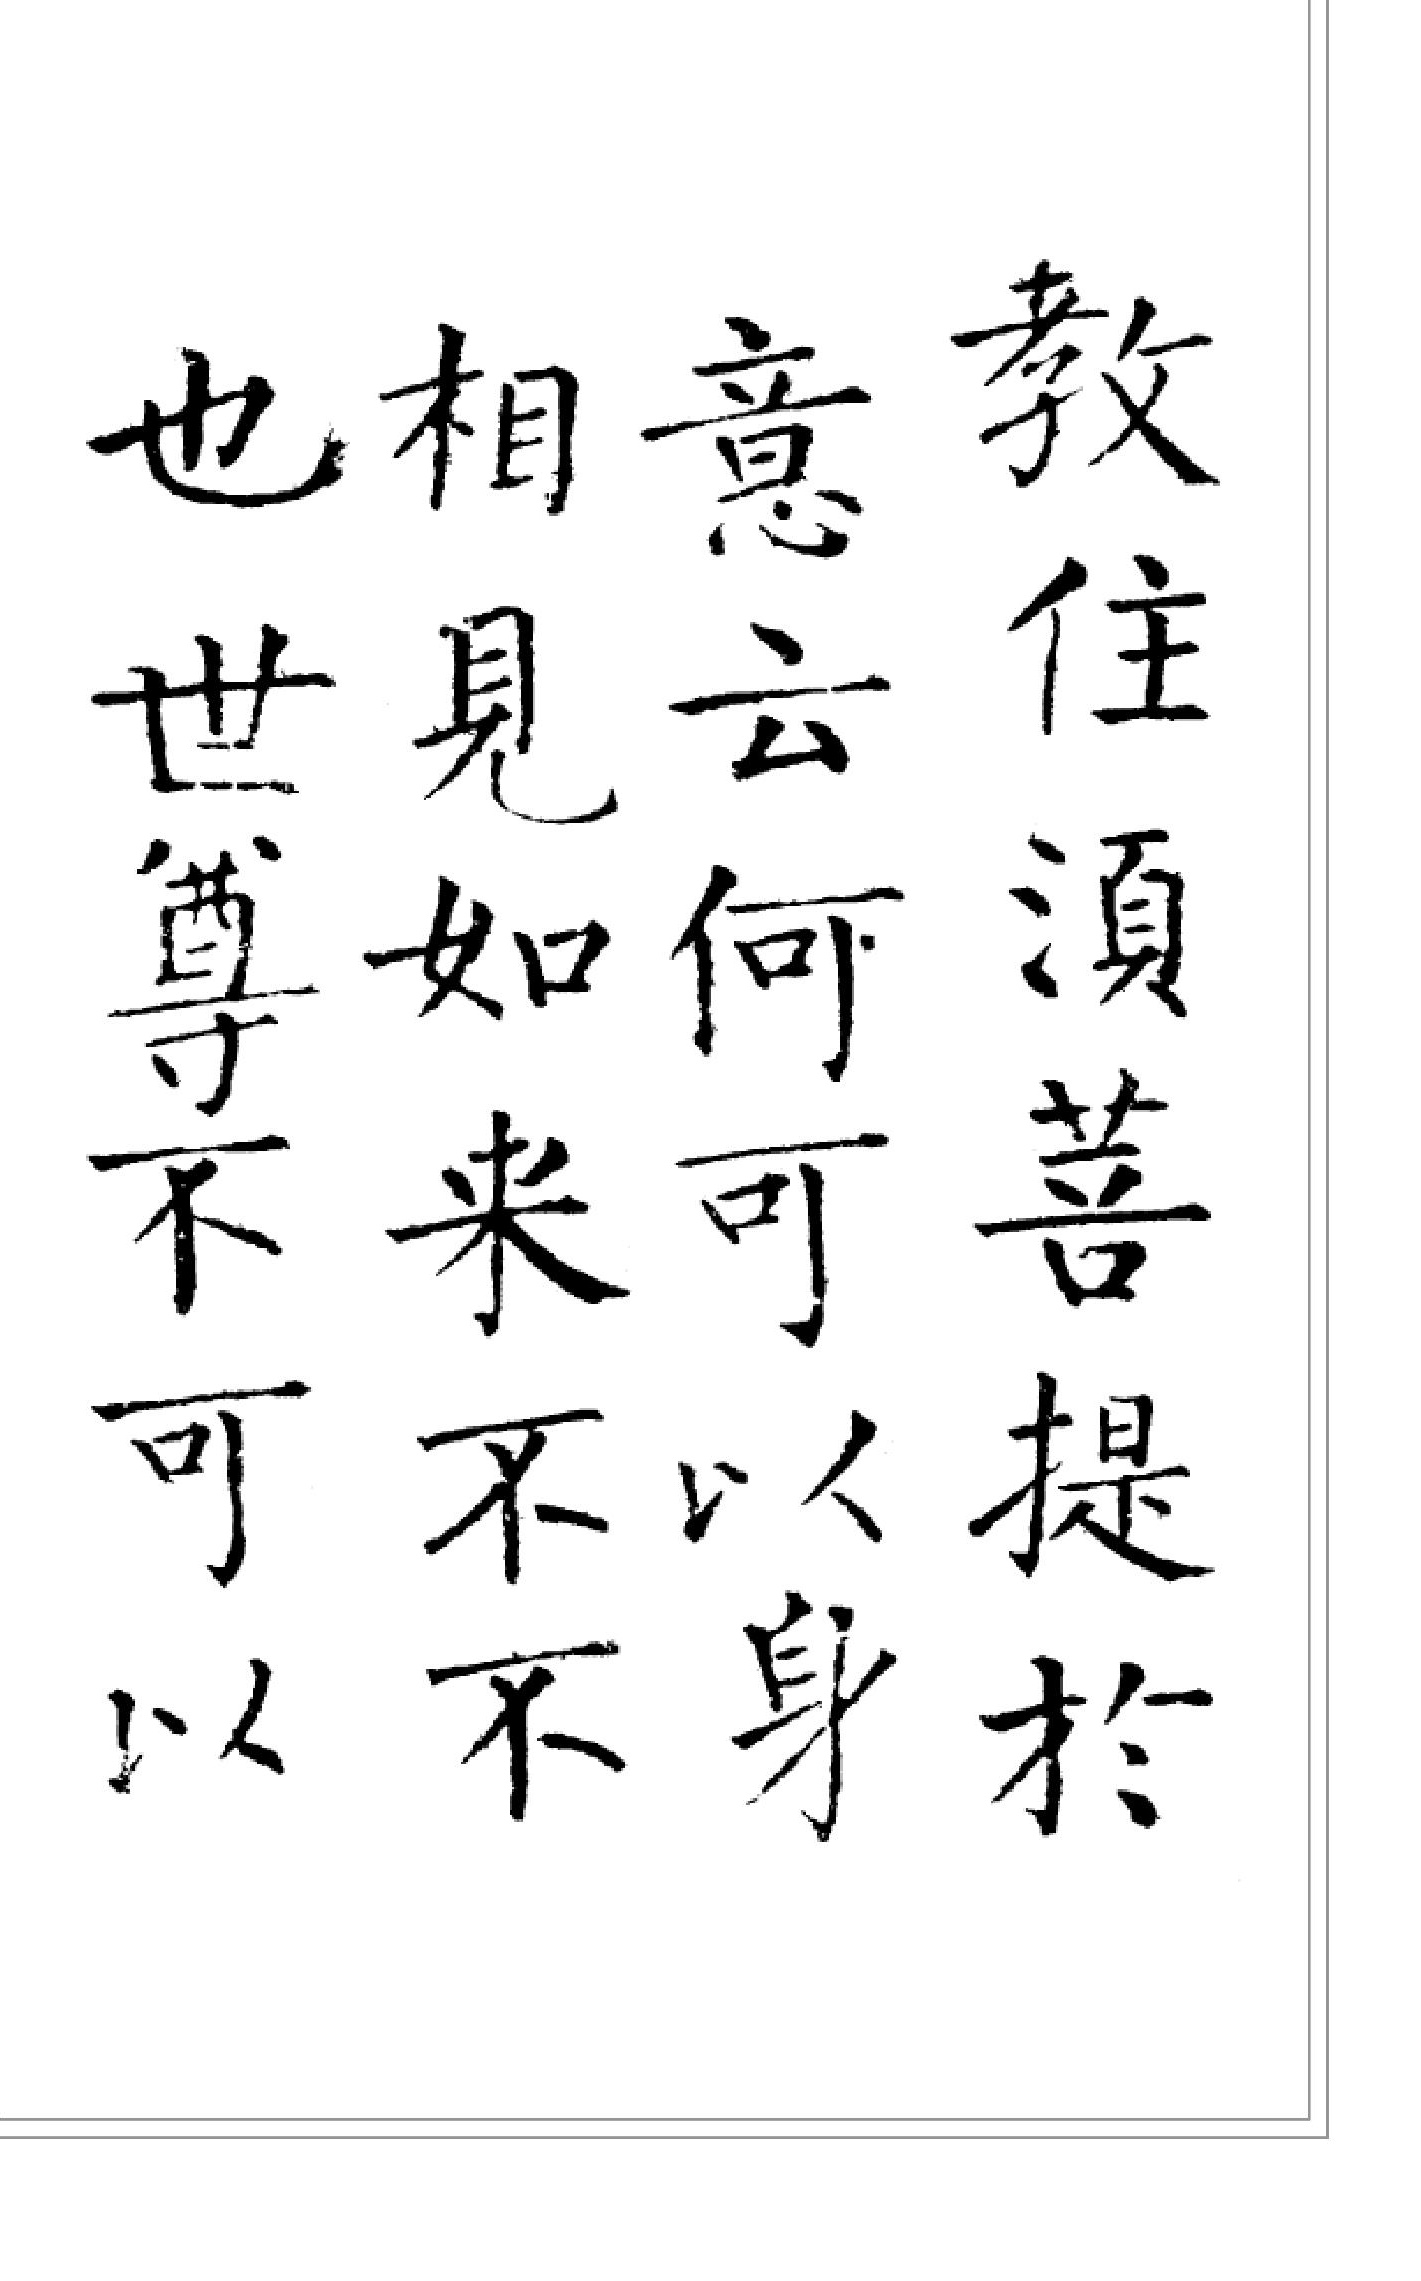 教住湏菩提於
意云何可以身
相見如来不不
也世尊不可以